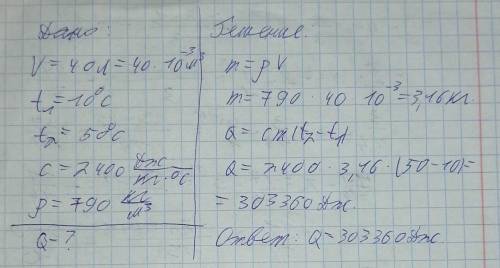 Дано:
V = 40л = 40 · 10⁻³ м³
t₁ = 10°C
t₂ = 50°C
c = 2400 Дж/кг·°C
ρ = 790 кг/м³
Q - ?
Решение.
m = ρV
m = 790 · 40 · 10⁻³ = 3,16 кг.
Q = cm(t₂-t₁)
Q = 2400 · 3,16 · (50-10) =
= 303360 Дж.
Ответ: Q = 303360 Дж.